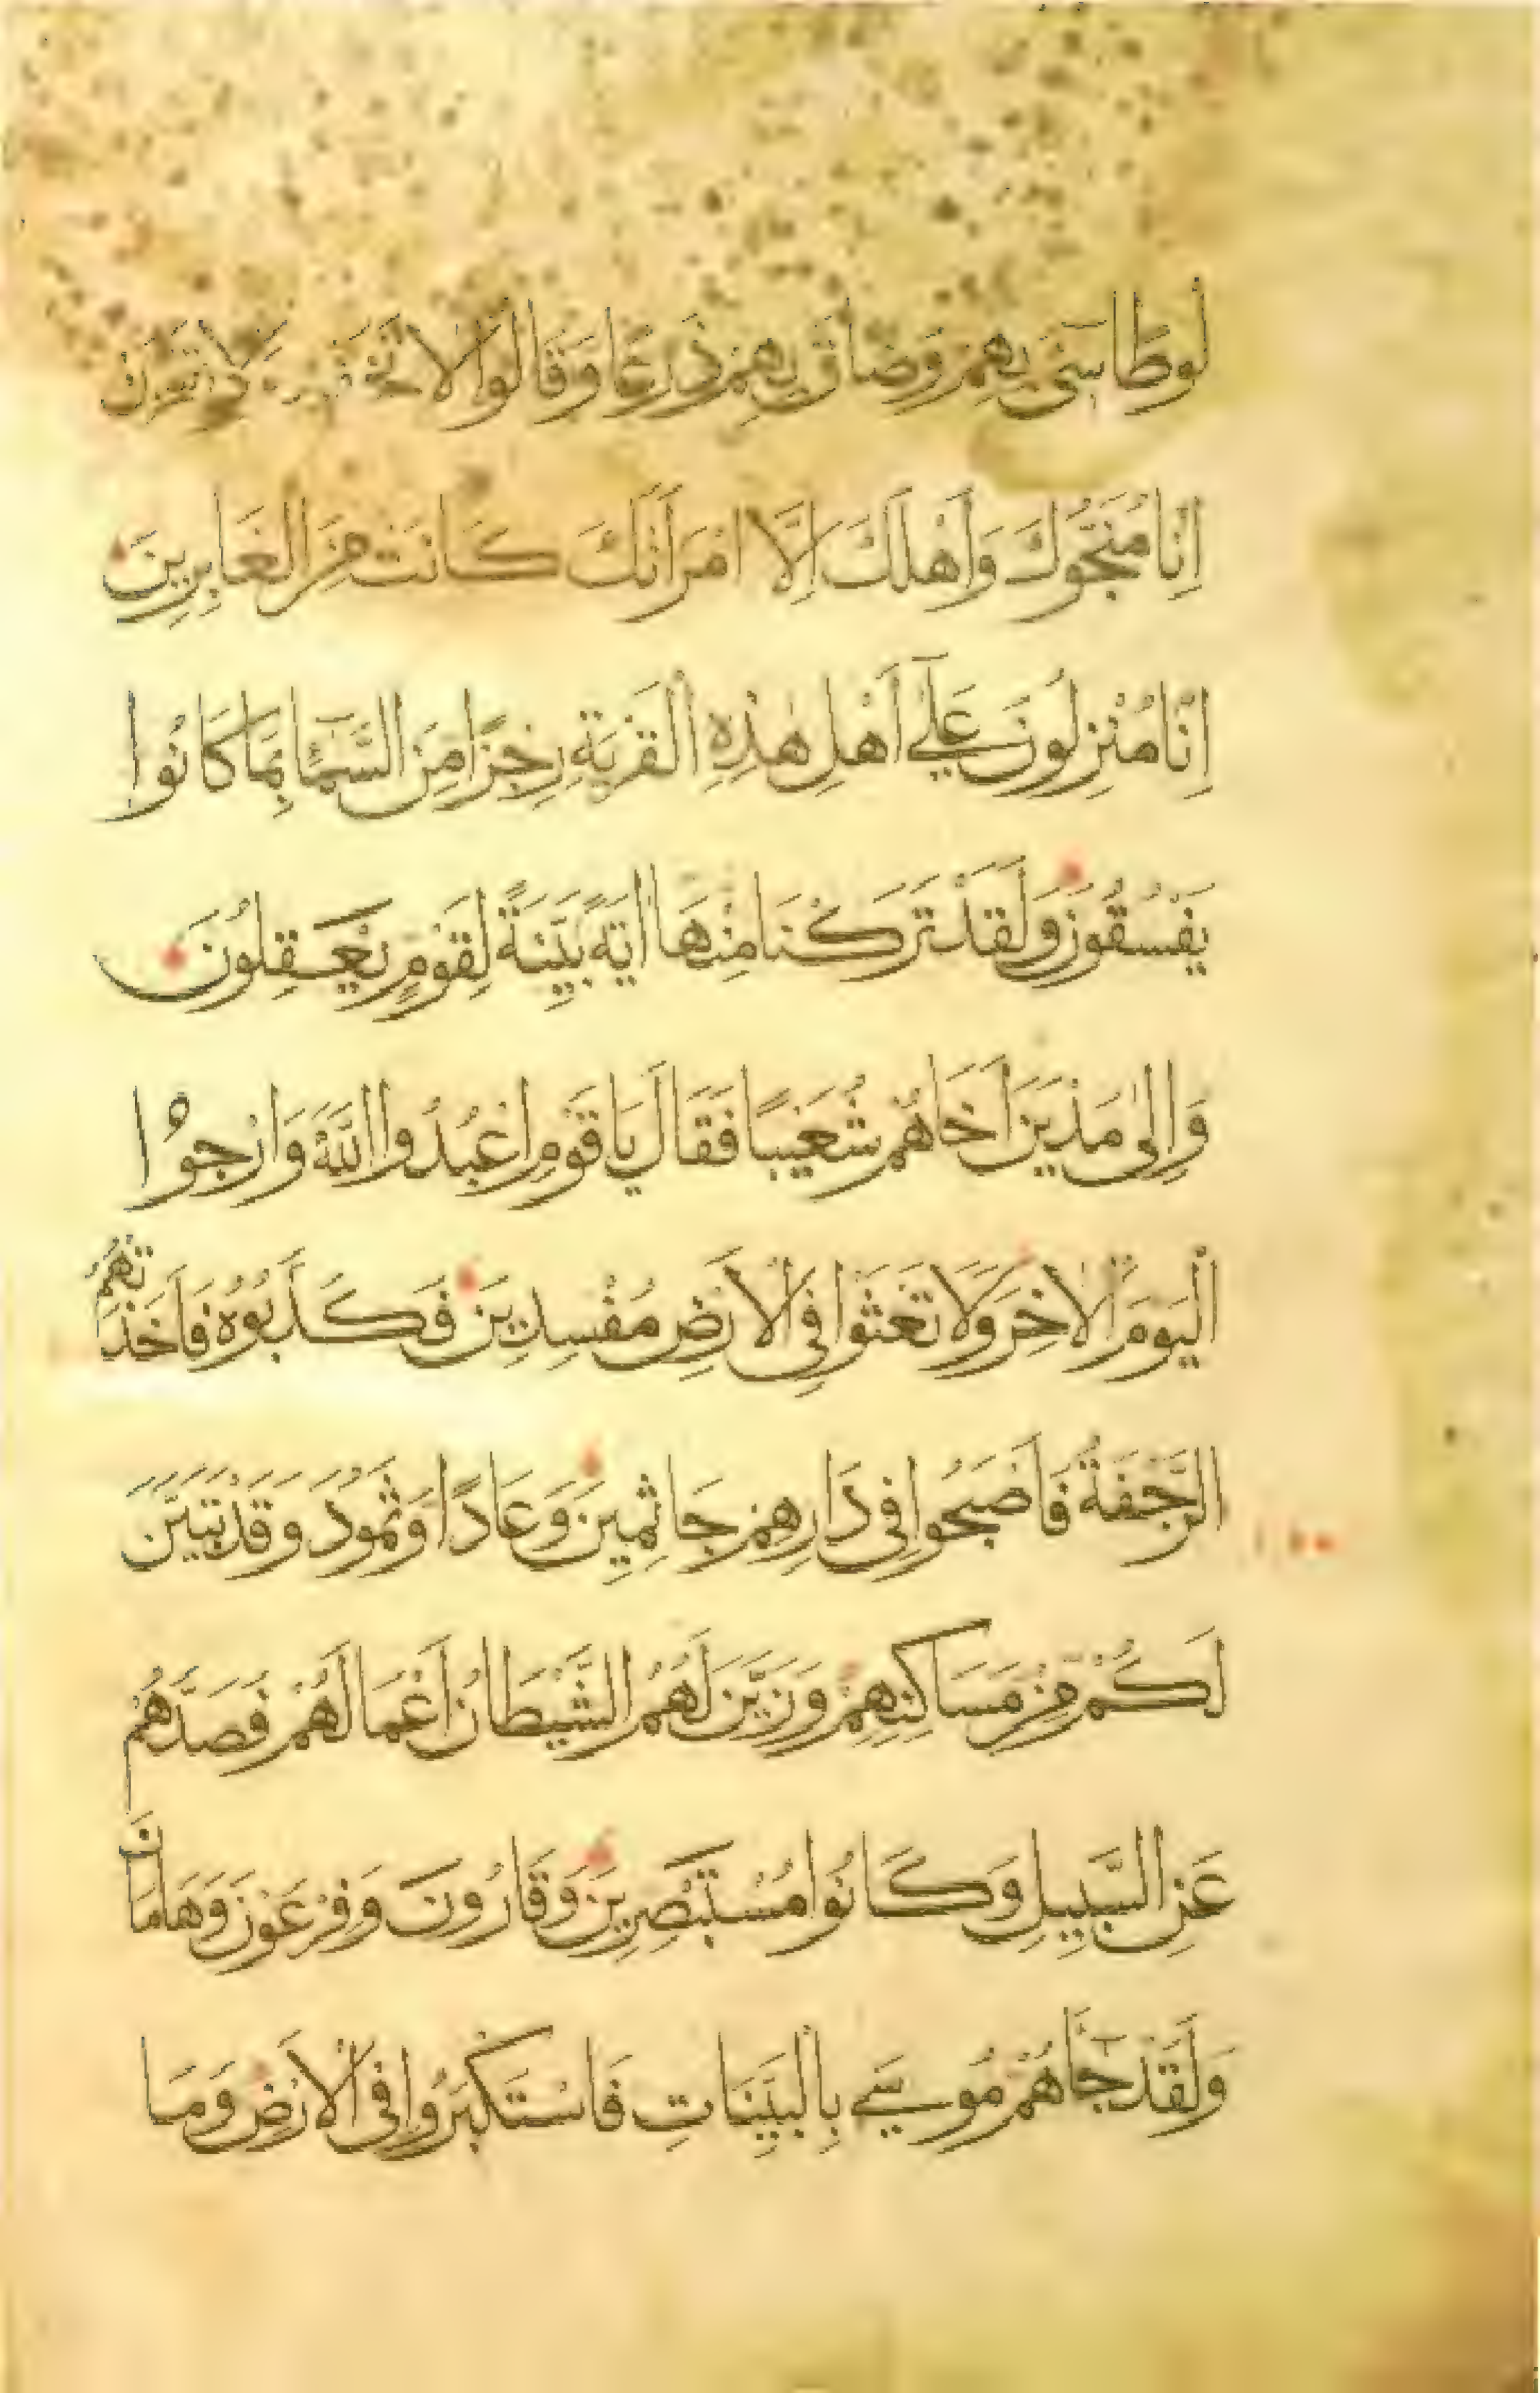 لُوطًا سِىءَ بِهِمْ وَضَاقَ بِهِمْ ذَرْعًا وَقَالُوا لَا تَخَفْ وَلَا تَحْزَنْ
اِنَّا مُنَجُّوكَ وَاَهْلَكَ اِلَّا امْرَاَتَكَ كَانَتْ مِنَ الْغَابِرِينَ
اِنَّا مُنْزِلُونَ عَلَى اَهْلِ هٰذِهِ الْقَرْيَةِ رِجْزًا مِنَ السَّمَاءِ بِمَا كَانُوا
يَفْسُقُونَ وَلَقَدْ تَرَكْنَا مِنْهَا اٰيَةً بَيِّنَةً لِقَوْمٍ يَعْقِلُونَ
وَاِلٰى مَدْيَنَ اَخَاهُمْ شُعَيْبًا فَقَالَ يَا قَوْمِ اعْبُدُوا اللّٰهَ وَارْجُوا
الْيَوْمَ الْاٰخِرَ وَلَا تَعْثَوْا فِى الْاَرْضِ مُفْسِدِينَ فَكَذَّبُوهُ فَاَخَذَتْهُمُ
الرَّجْفَةُ فَاَصْبَحُوا فِى دَارِهِمْ جَاثِمِينَ وَعَادًا وَثَمُودَ وَقَدْ تَبَيَّنَ
لَكُمْ مِنْ مَسَاكِنِهِمْ وَزَيَّنَ لَهُمُ الشَّيْطَانُ اَعْمَالَهُمْ فَصَدَّهُمْ
عَنِ السَّبِيلِ وَكَانُوا مُسْتَبْصِرِينَ وَقَارُونَ وَفِرْعَوْنَ وَهَامَانَ
وَلَقَدْ جَاءَهُمْ مُوسَى بِالْبَيِّنَاتِ فَاسْتَكْبَرُوا فِى الْاَرْضِ وَمَا